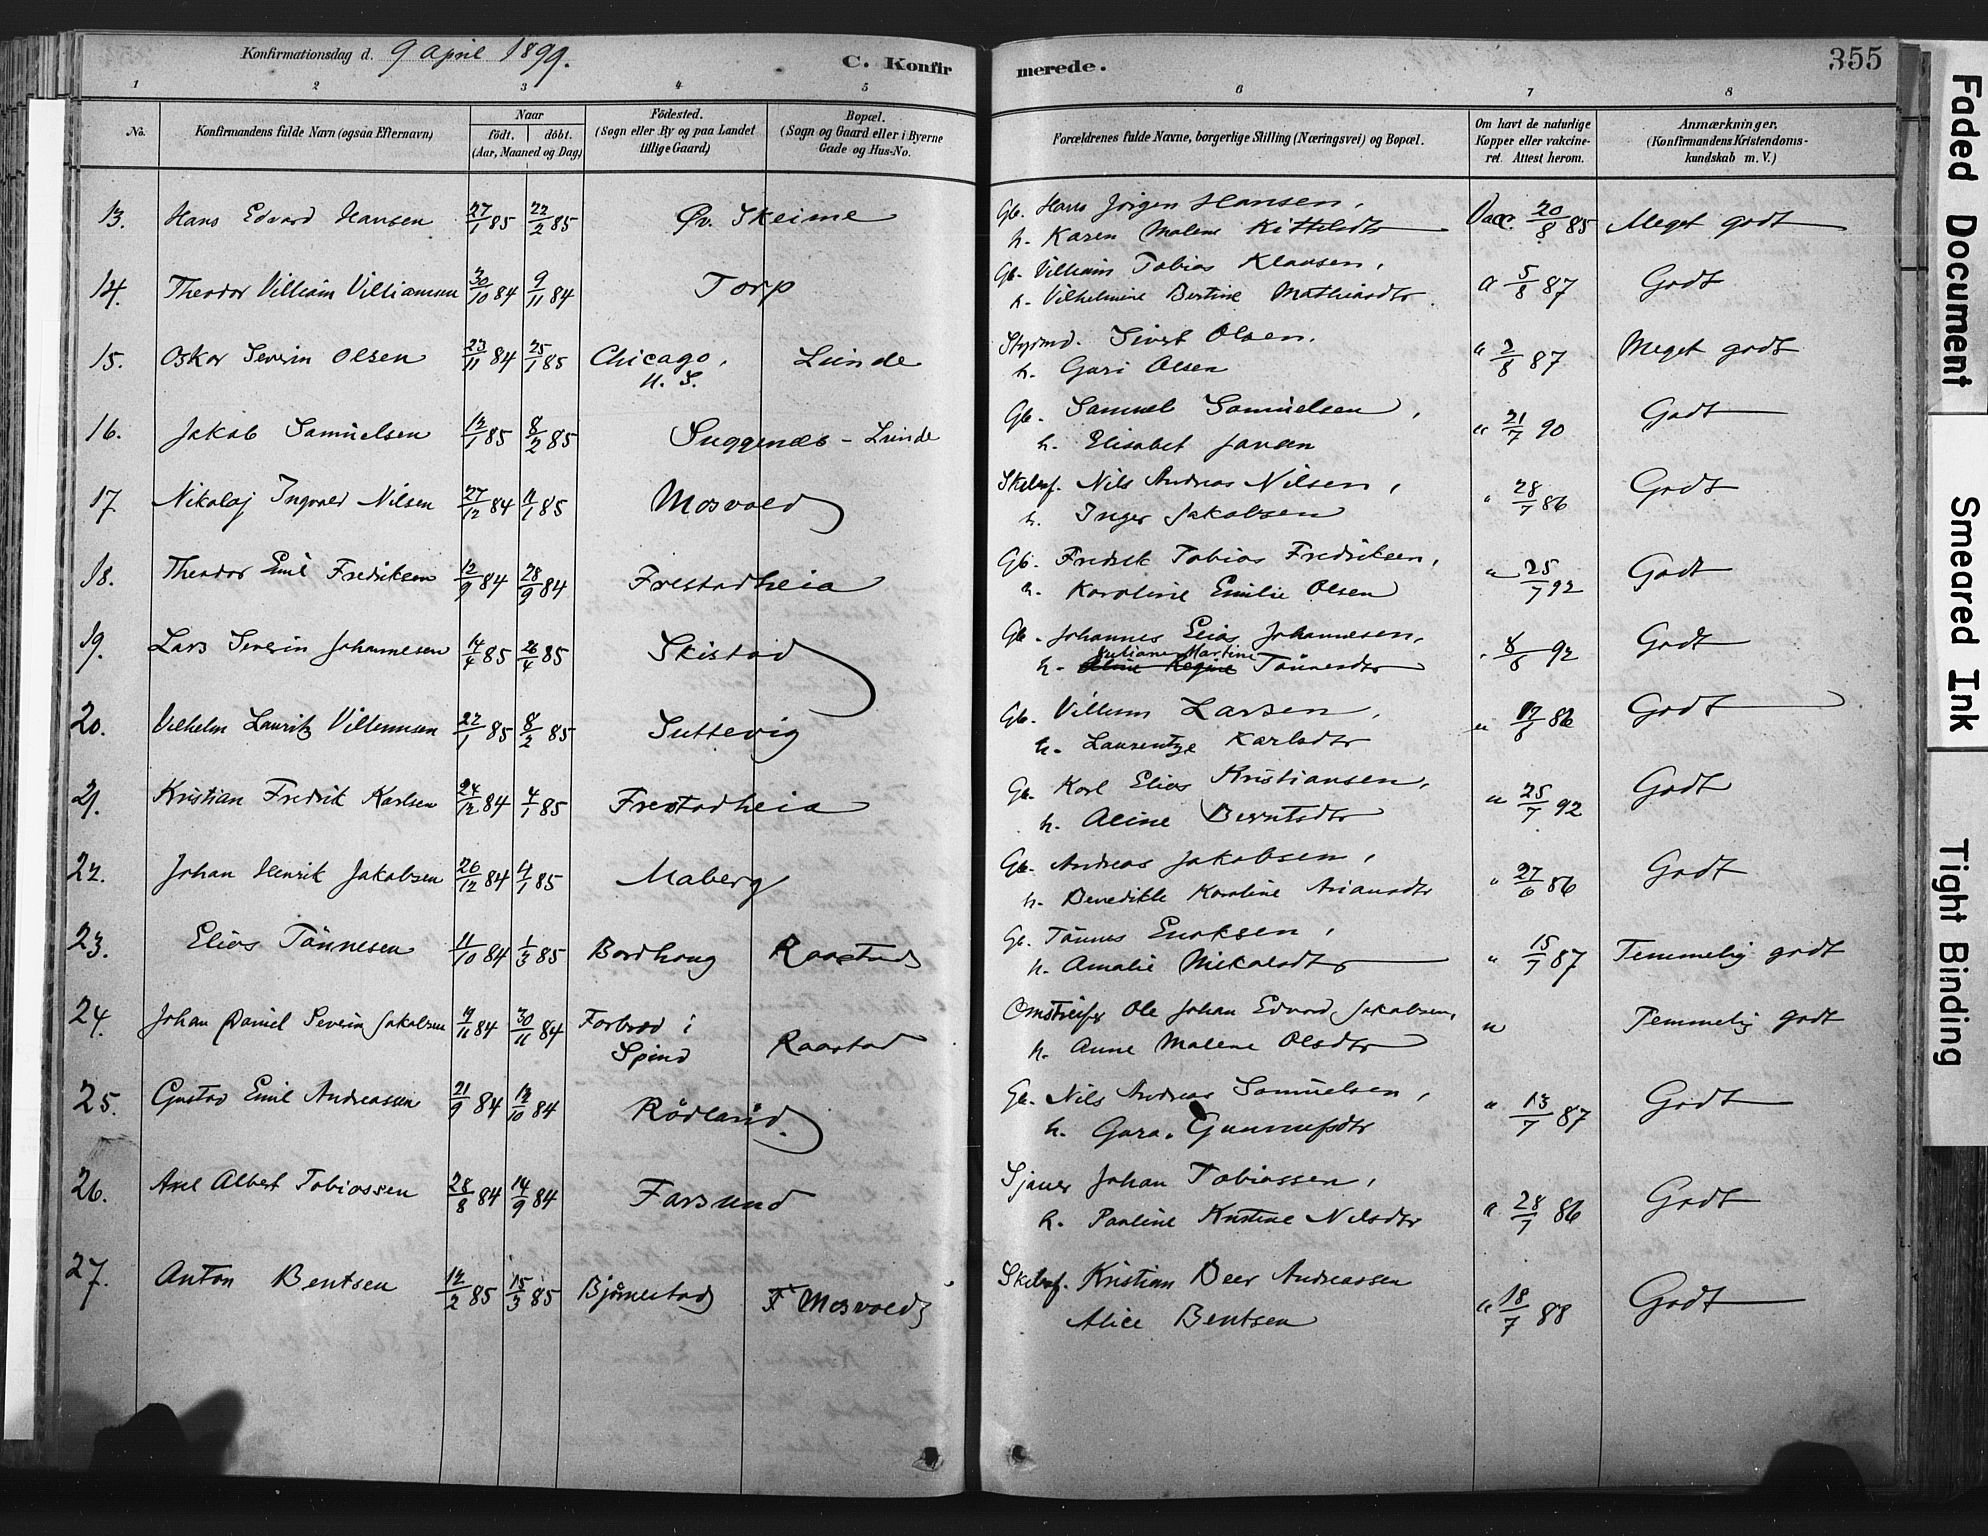 Konfirmationsdag d. 9 April 1899.
C. Konfir
merede.
355
1 2 3 4 5 6 7 8
No.
Konfirmandens fulde Navn (ogsaa Efternavn)
Naar
födt. döbt.
(Aar, Maaned og Dag)
Födested.
(Sogn eller By og paa Landet
tillige Gaard)
Bopæl.
(Sogn og Gaard eller i Byerne
Gade og Hus-No.
Forældrenes fulde Navne, borgerlige Stilling (Næringsvei) og Bopæl.
Om havt de naturlige
Kopper eller vakcine-
ret. Attest herom.
Anmærkninger.
(Konfirmandens Kristendoms-
kundskab m. V.)
13. Hans Edvard Hansen 27/1 85 22/2 85 Øv. Skeime Gb. Hans Jörgen Hansen, Vacc. 20/8 85 Meget godt
h. Karen Malene Kittelsdtr
14. Theodor Villiam Villiamsen 30/10 84 9/11 84 Torp Gb. Villiam Tobias Klausen, " 5/8 87 Godt
h. Vilhelmine Bertine Mathiasdtr.
15. Oskar Severin Olsen 23/11 84 25/1 85 Chicago, Lunde Styrmd. Sivert Olsen, " 2/8 87 Meget godt
N. S. h. Guri Olsen
16. Jakob Samuelsen 12/1 85 8/2 85 Suggenæs - Lunde Gb. Samuel Samuelsen, " 21/7 90 Godt
h. Elisabet Jansen
17 Nikolaj Ingvald Nilsen 27/12 84 11/1 85 Mosvold Skibsf. Nils Andreas Nilsen, " 28/7 86 Godt
h. Inger Jakobsen
18. Theodor Emil Fredriksen 12/9 84 28/9 84 Frestadheia Gb. Fredrik Tobias Fredriksen, " 25/7 92 Godt
h. Karoline Emilie Olsen
19. Lars Severin Johannesen 14/4 85 26/4 85 Skistad Gb. Johannes Elias Johannesen, " 8/8 92 Godt
Juliane Martine
h. Tönnesdtr
20. Vilhelm Lauritz Villumsen 22/1 85 8/2 85 Suttevig Gb. Villum Larsen, " 86 Godt
h. Laurentze Karlsdtr
21. Kristian Fredrik Karlsen 24/12 84 4/1 85 Frestadheia Gb. Karl Elias Kristiansen, " 25/7 92 Godt
h. Aline Berntsdtr
22. Johan Henrik Jakobsen 26/12 84 4/1 85 Maberg Gb. Andreas Jakobsen, " 27/6 86 Godt
h. Benedikte Karoline Ariansdtr
23. Elias Tönnesen 11/10 84 1/3 85 Bordhaug Raastad Gb. Tönnes Enoksen, " 15/7 87 Temmelig godt
h. Amalie Mikalsdtr
24. Johan Daniel Severin Jakobsen 84 30/11 84 Forbrod i Ole Johan Edvard Jakobsen, " Temmelig godt
Spind Raastad h. Anne Malene Olsdtr
25. Gustav Emil Andreassen 21/9 84 12/10 84 Rödland. Gb. Nils Andreas Samuelsen, " 13/7 87 Godt
h. Gura. Gunnufsdtr
26. Axel Albert Tobiassen 28/8 84 14/9 84 Farsund Sjauer Johan Tobiassen, " 28/7 86 Godt
h. Pauline Kristine Nilsdtr
27. Anton Bentsen 12/2 85 15/3 85 Björnestad F Mosvold Skibsf. Kristian Beer Andreassen " 18/7 88 Godt
Alice Bentsen
Faded Document
Smeared Ink
Tight Binding